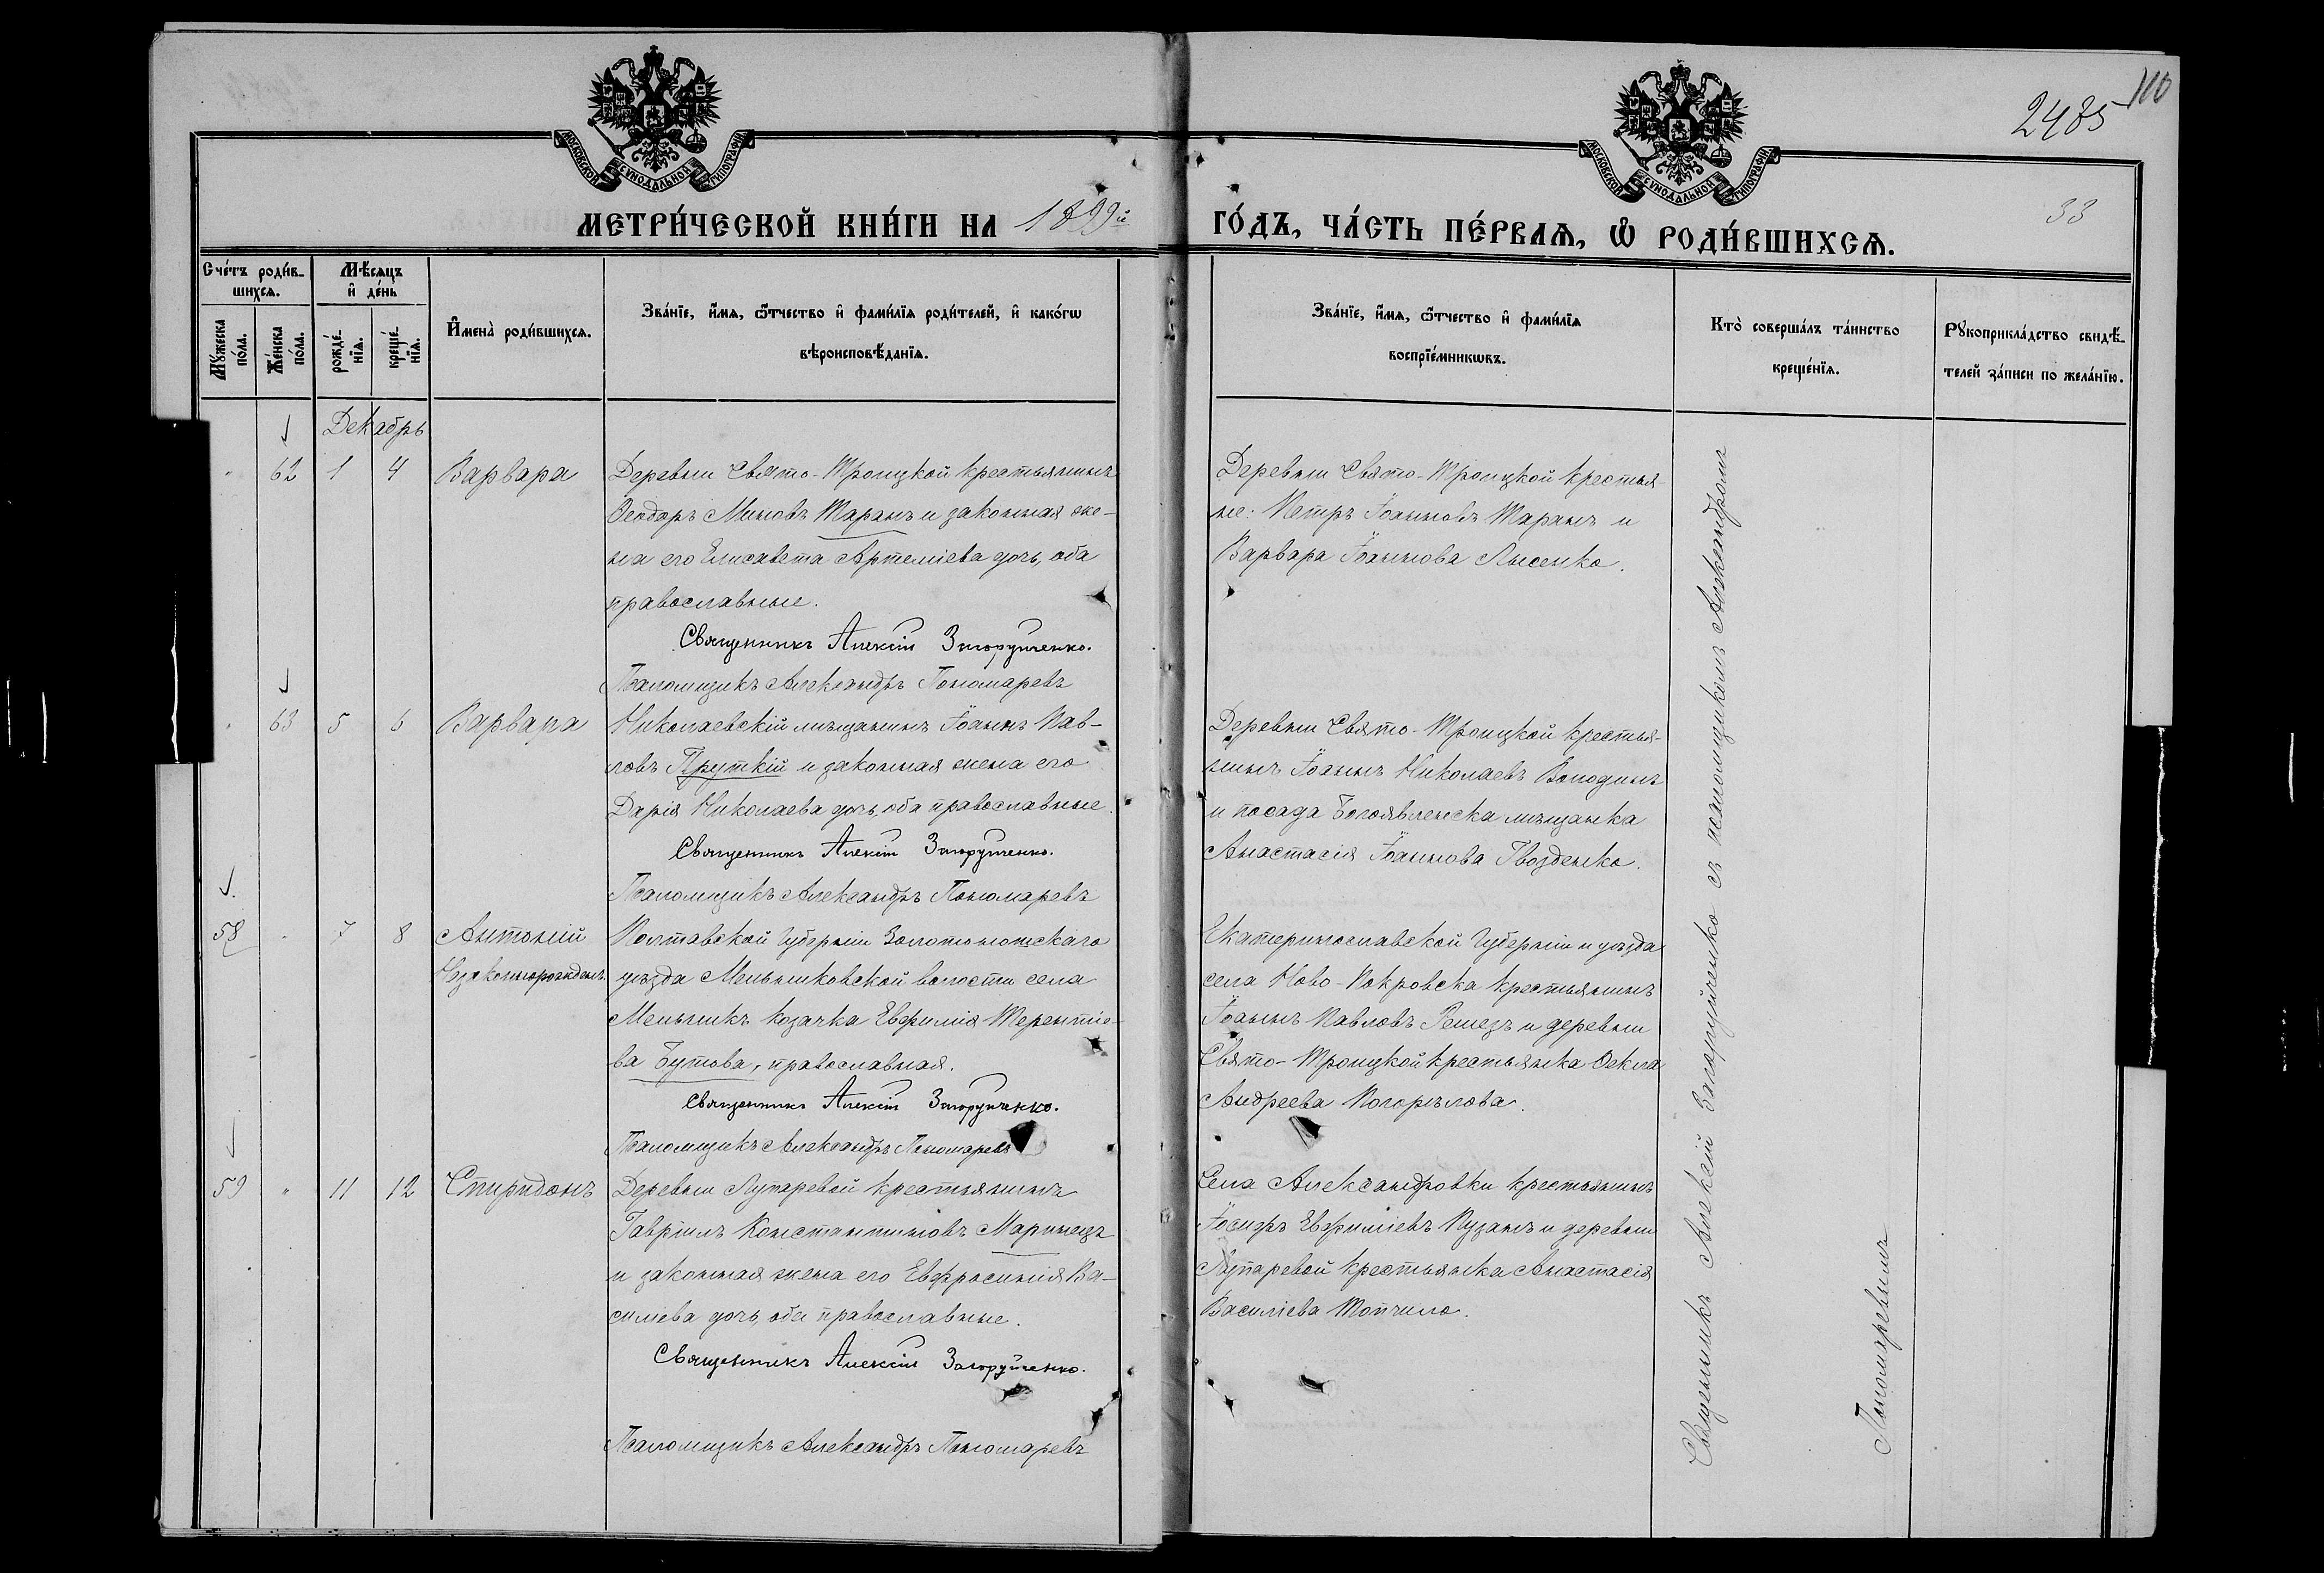 2485
110
33
МОСКОВСКОЙ СѴНОДАЛЬНОЙ ТИПОГРАФІИ
МОСКОВСКОЙ СѴНОДАЛЬНОЙ ТИПОГРАФІИ
МЕТРИ́ЧЕСКОЙ КНИ́ГИ НА 1899й ГО́ДЪ, ЧА́СТЬ ПЕ́РВАѦ, Ѡ҆ РОДИ́ВШИХСѦ.
Сче́тъ роди́в-
шихсѧ.
Мꙋ́жеска
по́ла.
Же́нска
по́ла.
Мѣ́сѧцъ
и҆ де́нь
рожде́-
нїѧ.
креще́-
нїѧ.
И҆мена̀ роди́вшихсѧ.
Зва́нїе, и҆́мѧ, ѻ҆́тчество и҆ фами́лїѧ роди́телей, и҆ како́гѡ
вѣроисповѣ́данїѧ.
Зва́нїе, и҆́мѧ, ѻ҆́тчество и҆ фами́лїѧ
воспрїе́мникѡвъ.
Кто̀ соверша́лъ та́инство
креще́нїѧ.
Рꙋкоприкла́дство свидѣ́-
телей за́писи по жела́нїю.
Декабрь
" 62 1 4 Варвара
Деревни Свято-Троицкой крестьянинъ
Ѳеодоръ Миновъ Таранъ и законная же-
на его Елисавета Артеміева дочь, оба
православные.
Священникъ Алексій Загоруйченко.
Псаломщикъ Александръ Пономаревъ
Деревни Свято-Троицкой крестья-
не: Петръ Іоанновъ Таранъ и
Варвара Іоаннова Лысенко.
" 63 5 6 Варвара
Николаевскій мѣщанинъ Іоаннъ Пав-
ловъ Пруткій и законная жена его
Дарія Николаева дочь, оба православные.
Священникъ Алексій Загоруйченко.
Псаломщикъ Александръ Пономаревъ
Деревни Свято-Троицкой крестья-
нинъ Іоаннъ Николаевъ Володинъ
и посада Богоявленска мѣщанка
Анастасія Іоаннова Гвозденко.
58 " 7 8 Антоній
Незаконнорожденъ.
Полтавской Губерніи Золотоношскаго
уѣзда Мельниковской волости села
Мельникъ козачка Евфимія Терентіе-
ва Бутова, православная.
Священникъ Алексій Загоруйченко.
Псаломщикъ Александръ Пономаревъ
Екатеринославской Губерніи и уѣзда
села Ново-Покровска крестьянинъ
Іоаннъ Павловъ Ремезъ и деревни
Свято-Троицкой крестьянка Ѳекла
Андреева Погорѣлова.
59 " 11 12 Спиридонъ
Деревни Лупаревой крестьянинъ
Гавріилъ Константиновъ Маринецъ
и законная жена его Евфросинія Ва-
силіева дочь, оба православные.
Священникъ Алексій Загоруйченко.
Псаломщикъ Александръ Пономаревъ
Села Александровки крестьянинъ
Іосифъ Евфиміевъ Пузанъ и деревни
Лупаревой крестьянка Анастасія
Василіева Топчило.
Священникъ Алексій Загоруйченко съ псаломщикомъ Александромъ
Пономаревымъ